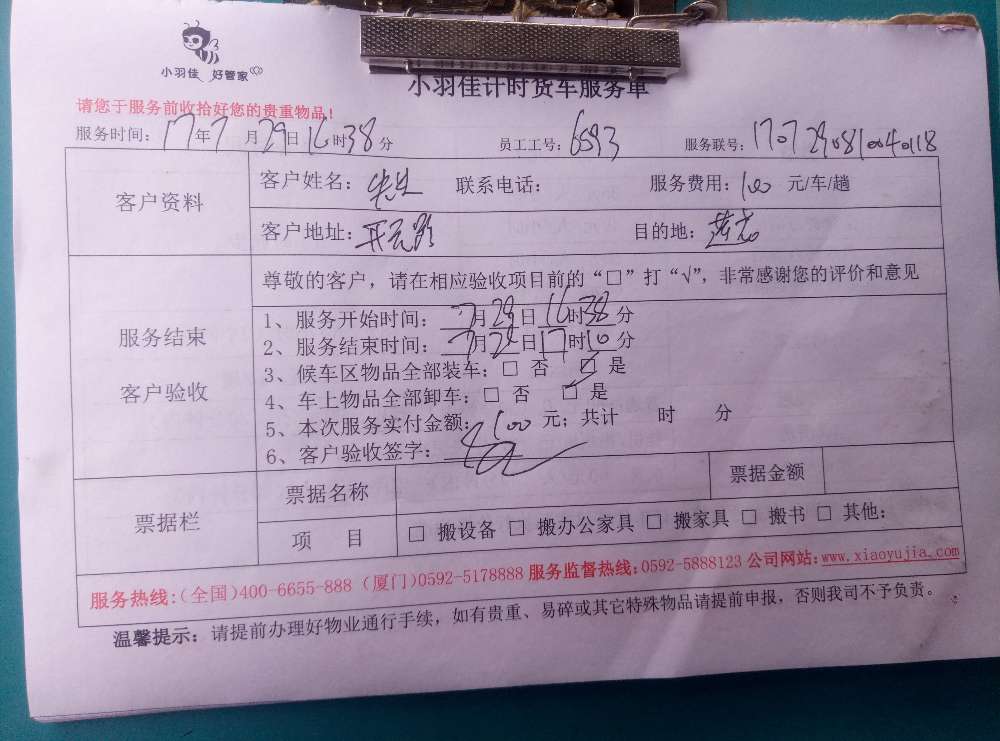 小羽佳 好管家
小羽佳计时货车服务单
请您于服务前收拾好您的贵重物品！
服务时间：17年7月29日16时38分 员工工号：6593 服务联号：
客户资料
客户姓名：先生 联系电话： 服务费用：100 元/车/趟
客户地址：开元路 目的地：
服务结束
客户验收
尊敬的客户，请在相应验收项目前的“□”打“√”，非常感谢您的评价和意见
1、服务开始时间：7月29日16时38分
2、服务结束时间：7月29日17时10分
3、候车区物品全部装车：□ 否 ☑ 是
4、车上物品全部卸车：□ 否 ☑ 是
5、本次服务实付金额：100 元；共计 时 分
6、客户验收签字：
票据栏
票据名称 票据金额
项 目 □ 搬设备 □ 搬办公家具 □ 搬家具 □ 搬书 □ 其他：
服务热线：（全国）400-6655-888（厦门）0592-5178888 服务监督热线：0592-5888123 公司网站：www.xiaoyujia.com
温馨提示：请提前办理好物业通行手续，如有贵重、易碎或其它特殊物品请提前申报，否则我司不予负责。